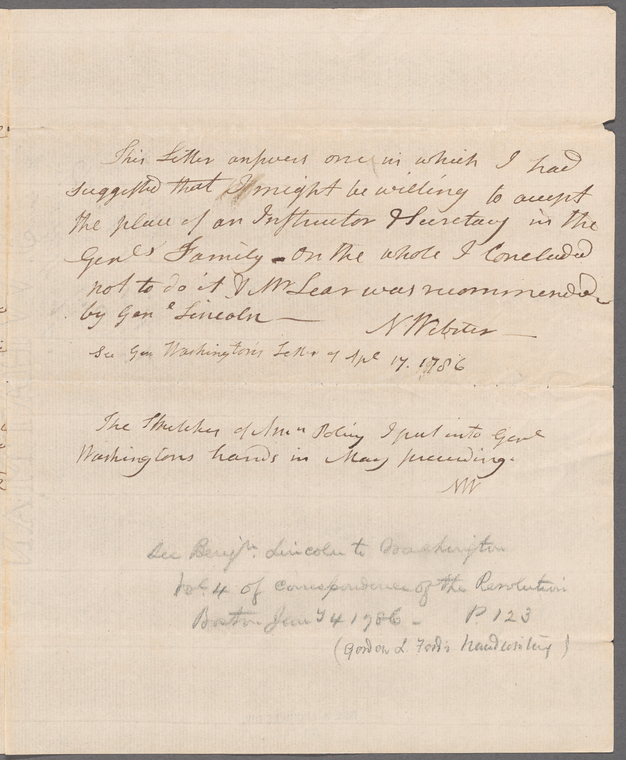 This Letter answers one in which I had
suggested that I might be willing to accept
the place of an Instructor & Secretary in the
Genls Family - On the whole I concluded
not to do it & Mr Lear was recommended
by Genl Lincoln — N Webster —
See Gen Washington's Letter of Apl 17. 1786
The Sketches of Amn Policy I put into Genl
Washingtons hands in May preceeding.
NW
See Benjn. Lincoln to Washington
Vol. 4 of Correspondence of the Revolution
Boston Jany 4 1786 - P 123
(Gordon L Ford's handwriting)